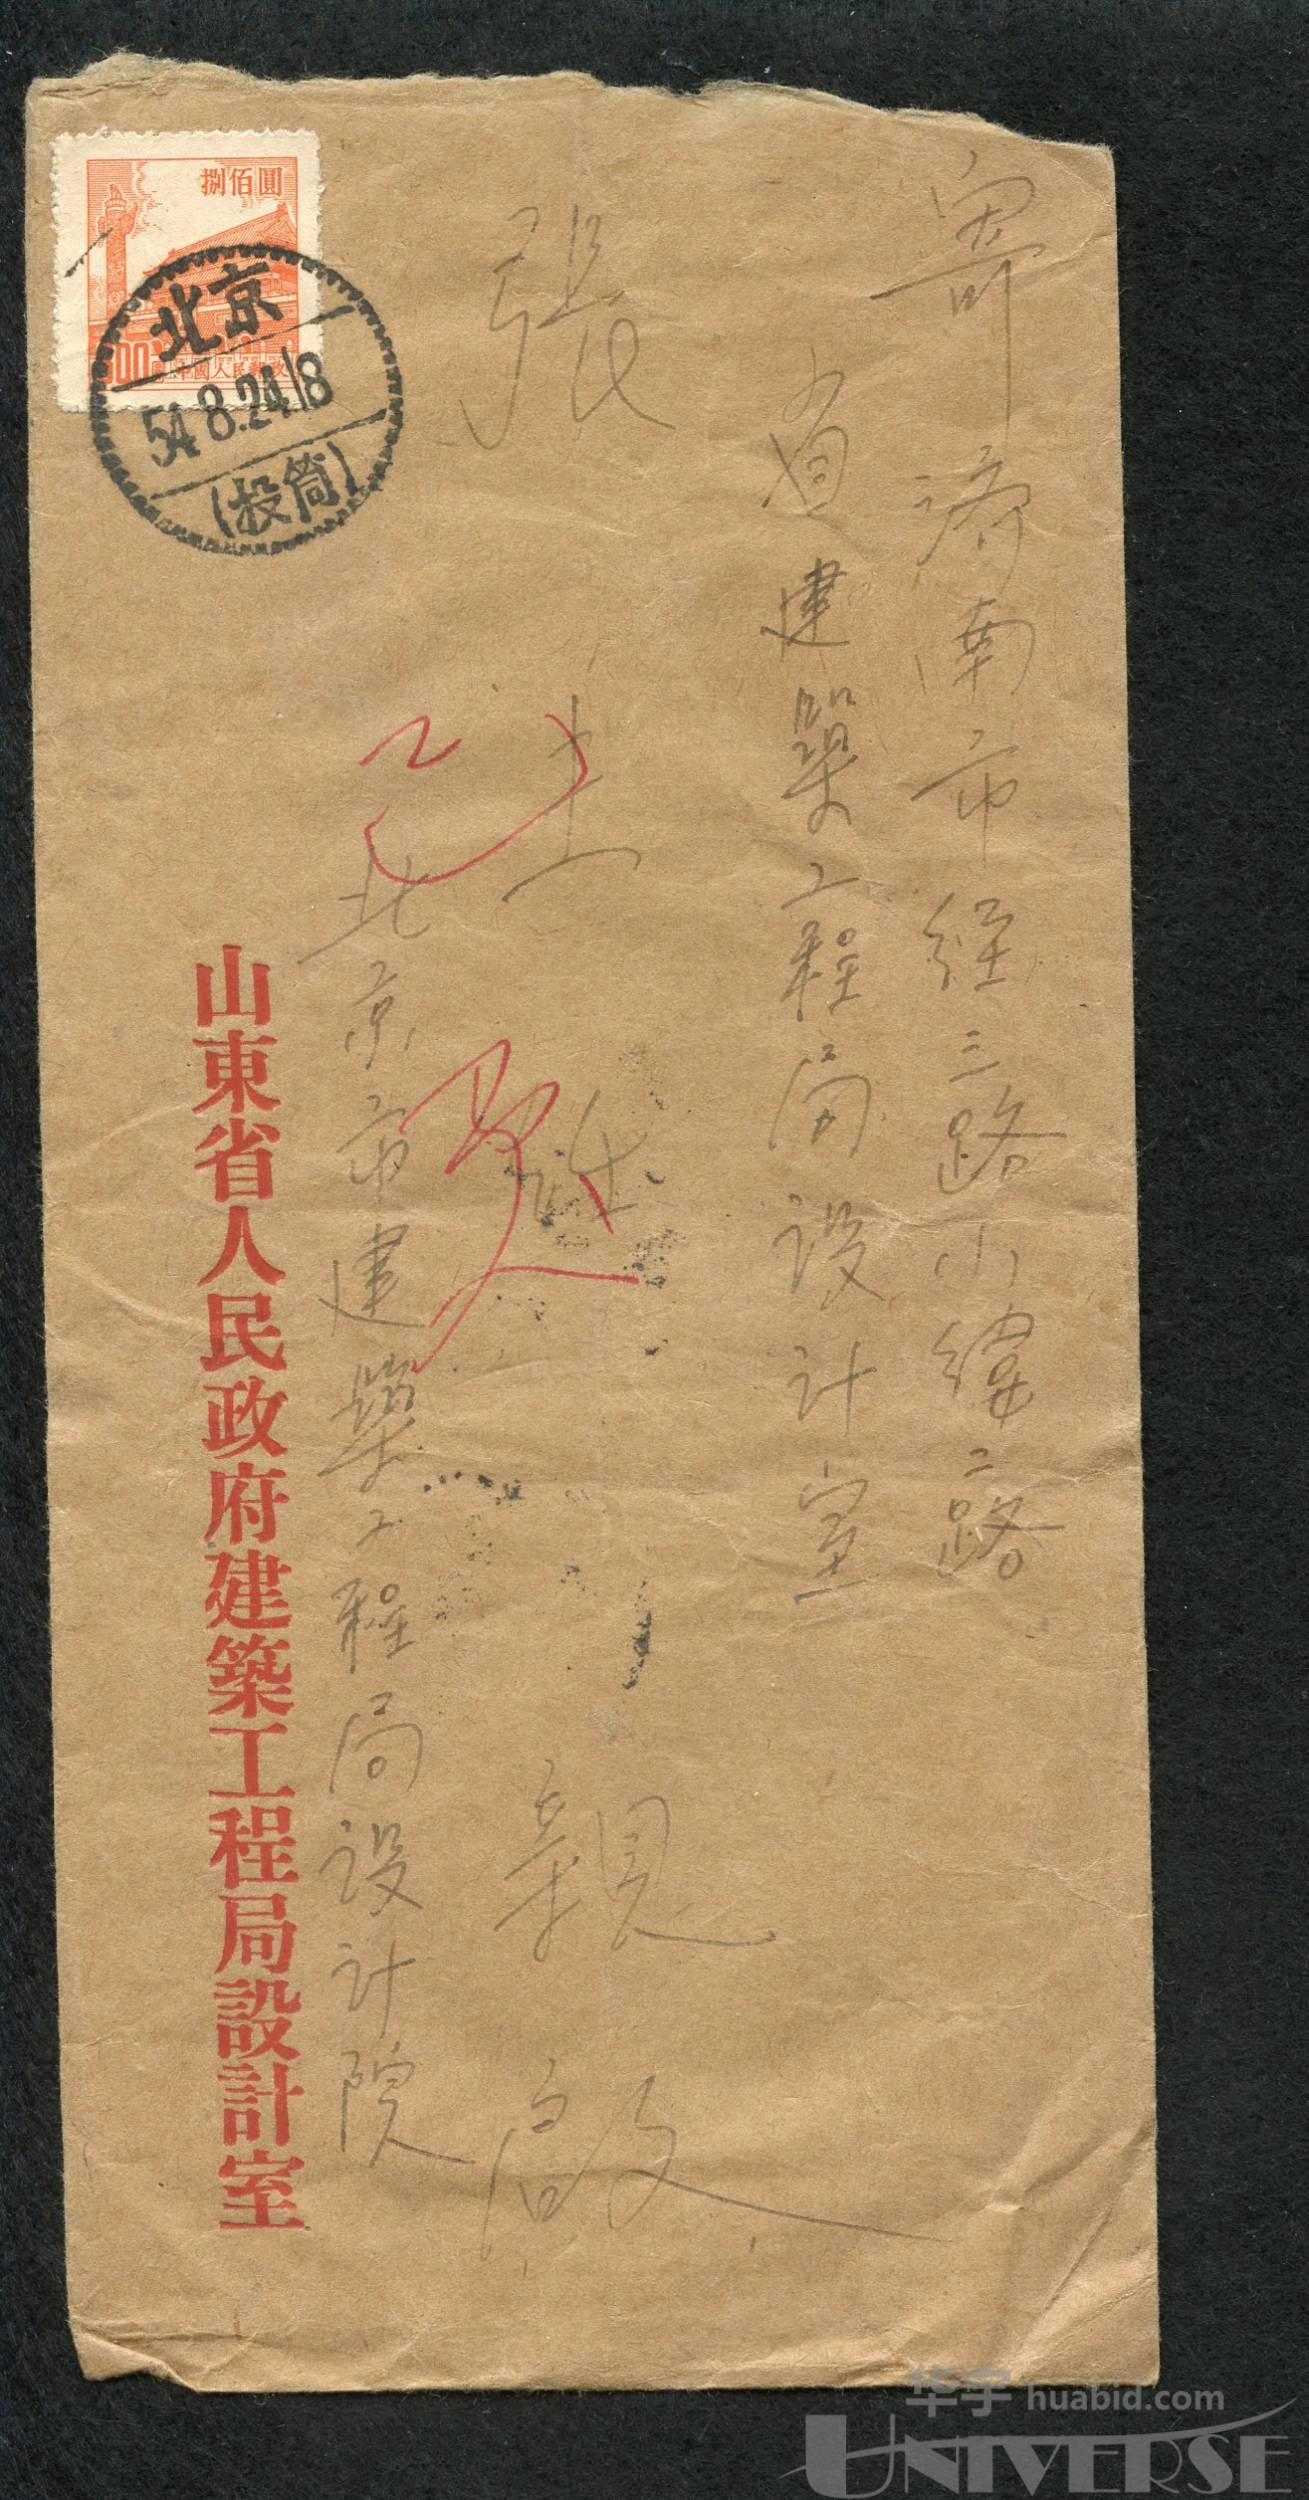 寄济南市经三路小纬二路
省建築工程局设计室
張
親啟
北京市建築工程局设计院
已
山東省人民政府建築工程局設計室
捌佰圓
800圓 中國人民郵政
北京
54.8.24.18
(投筒)
华宇 huabid.com
UNIVERSE